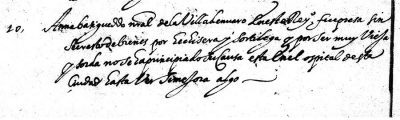 20, Ana barquedo nral de la Villa de muro Puerto Rey, fue presa sin
secresto de bienes por Echisera y sortilega y por ser muy Vieja
y sorda no se a principiado su causa esta en el ospital de esta
Ciudad hasta Ver si mejora algo